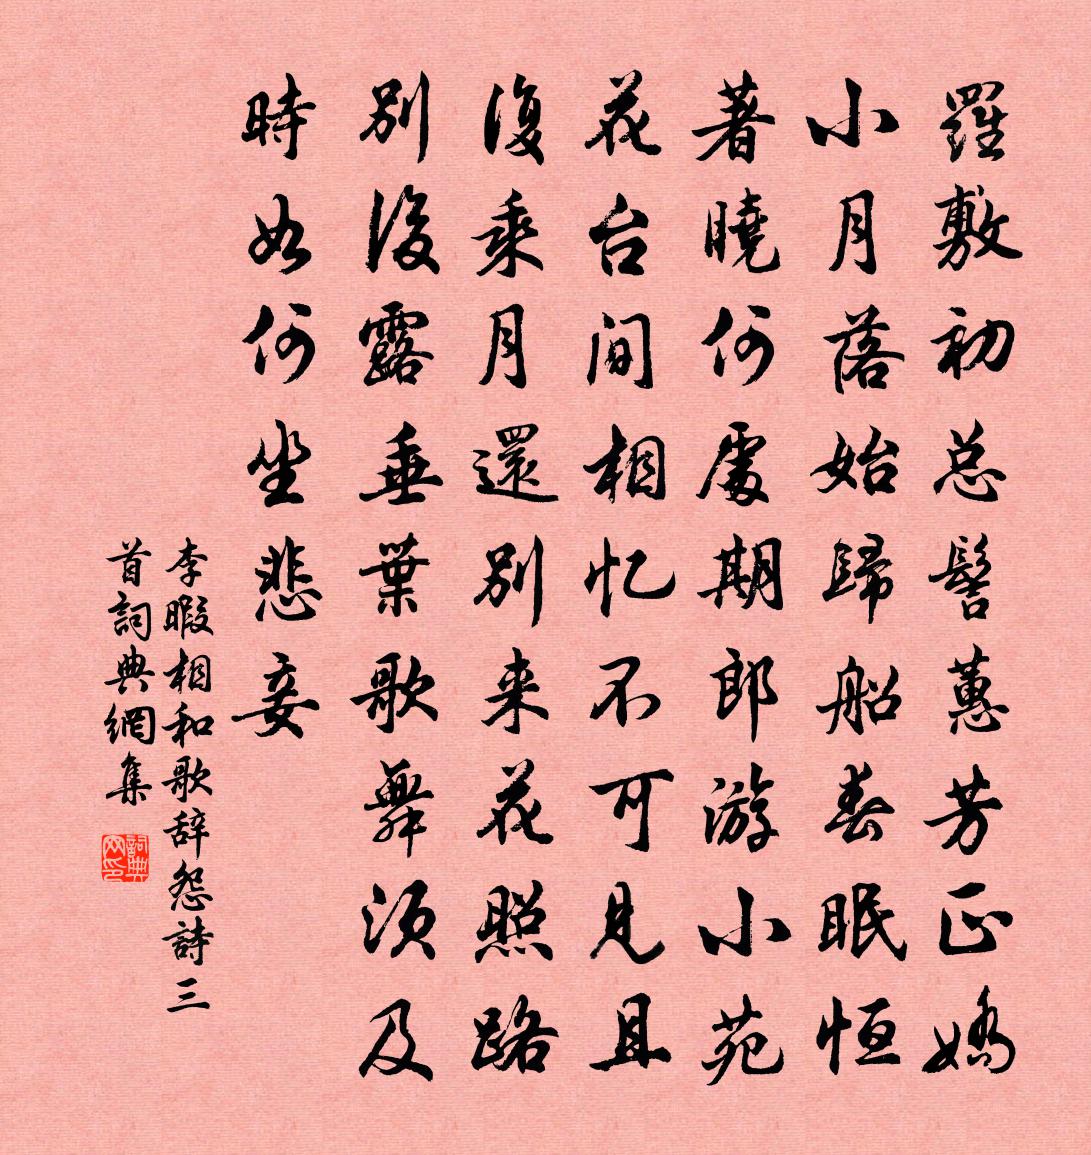 羅敷初总髻蕙芳正嬌
小月落始歸船春眠恒
著曉何處期郎游小苑
花台间相忆不可見且
復乘月還別来花照路
別後露垂葉歌舞須及
時如何坐悲妾
李暇相和歌辞怨詩三
首詞典網集
詞典网印